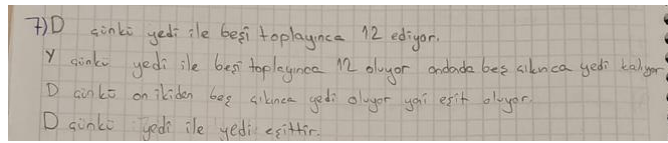 7) D çünkü yedi ile beşi toplayınca 12 ediyor.
Y çünkü yedi ile beşi toplayınca 12 oluyor ondada beş çıkınca yedi kalıyor
D çünkü on ikiden beş çıkınca yedi oluyor yani eşit oluyor.
D çünkü yedi ile yedi eşittir.